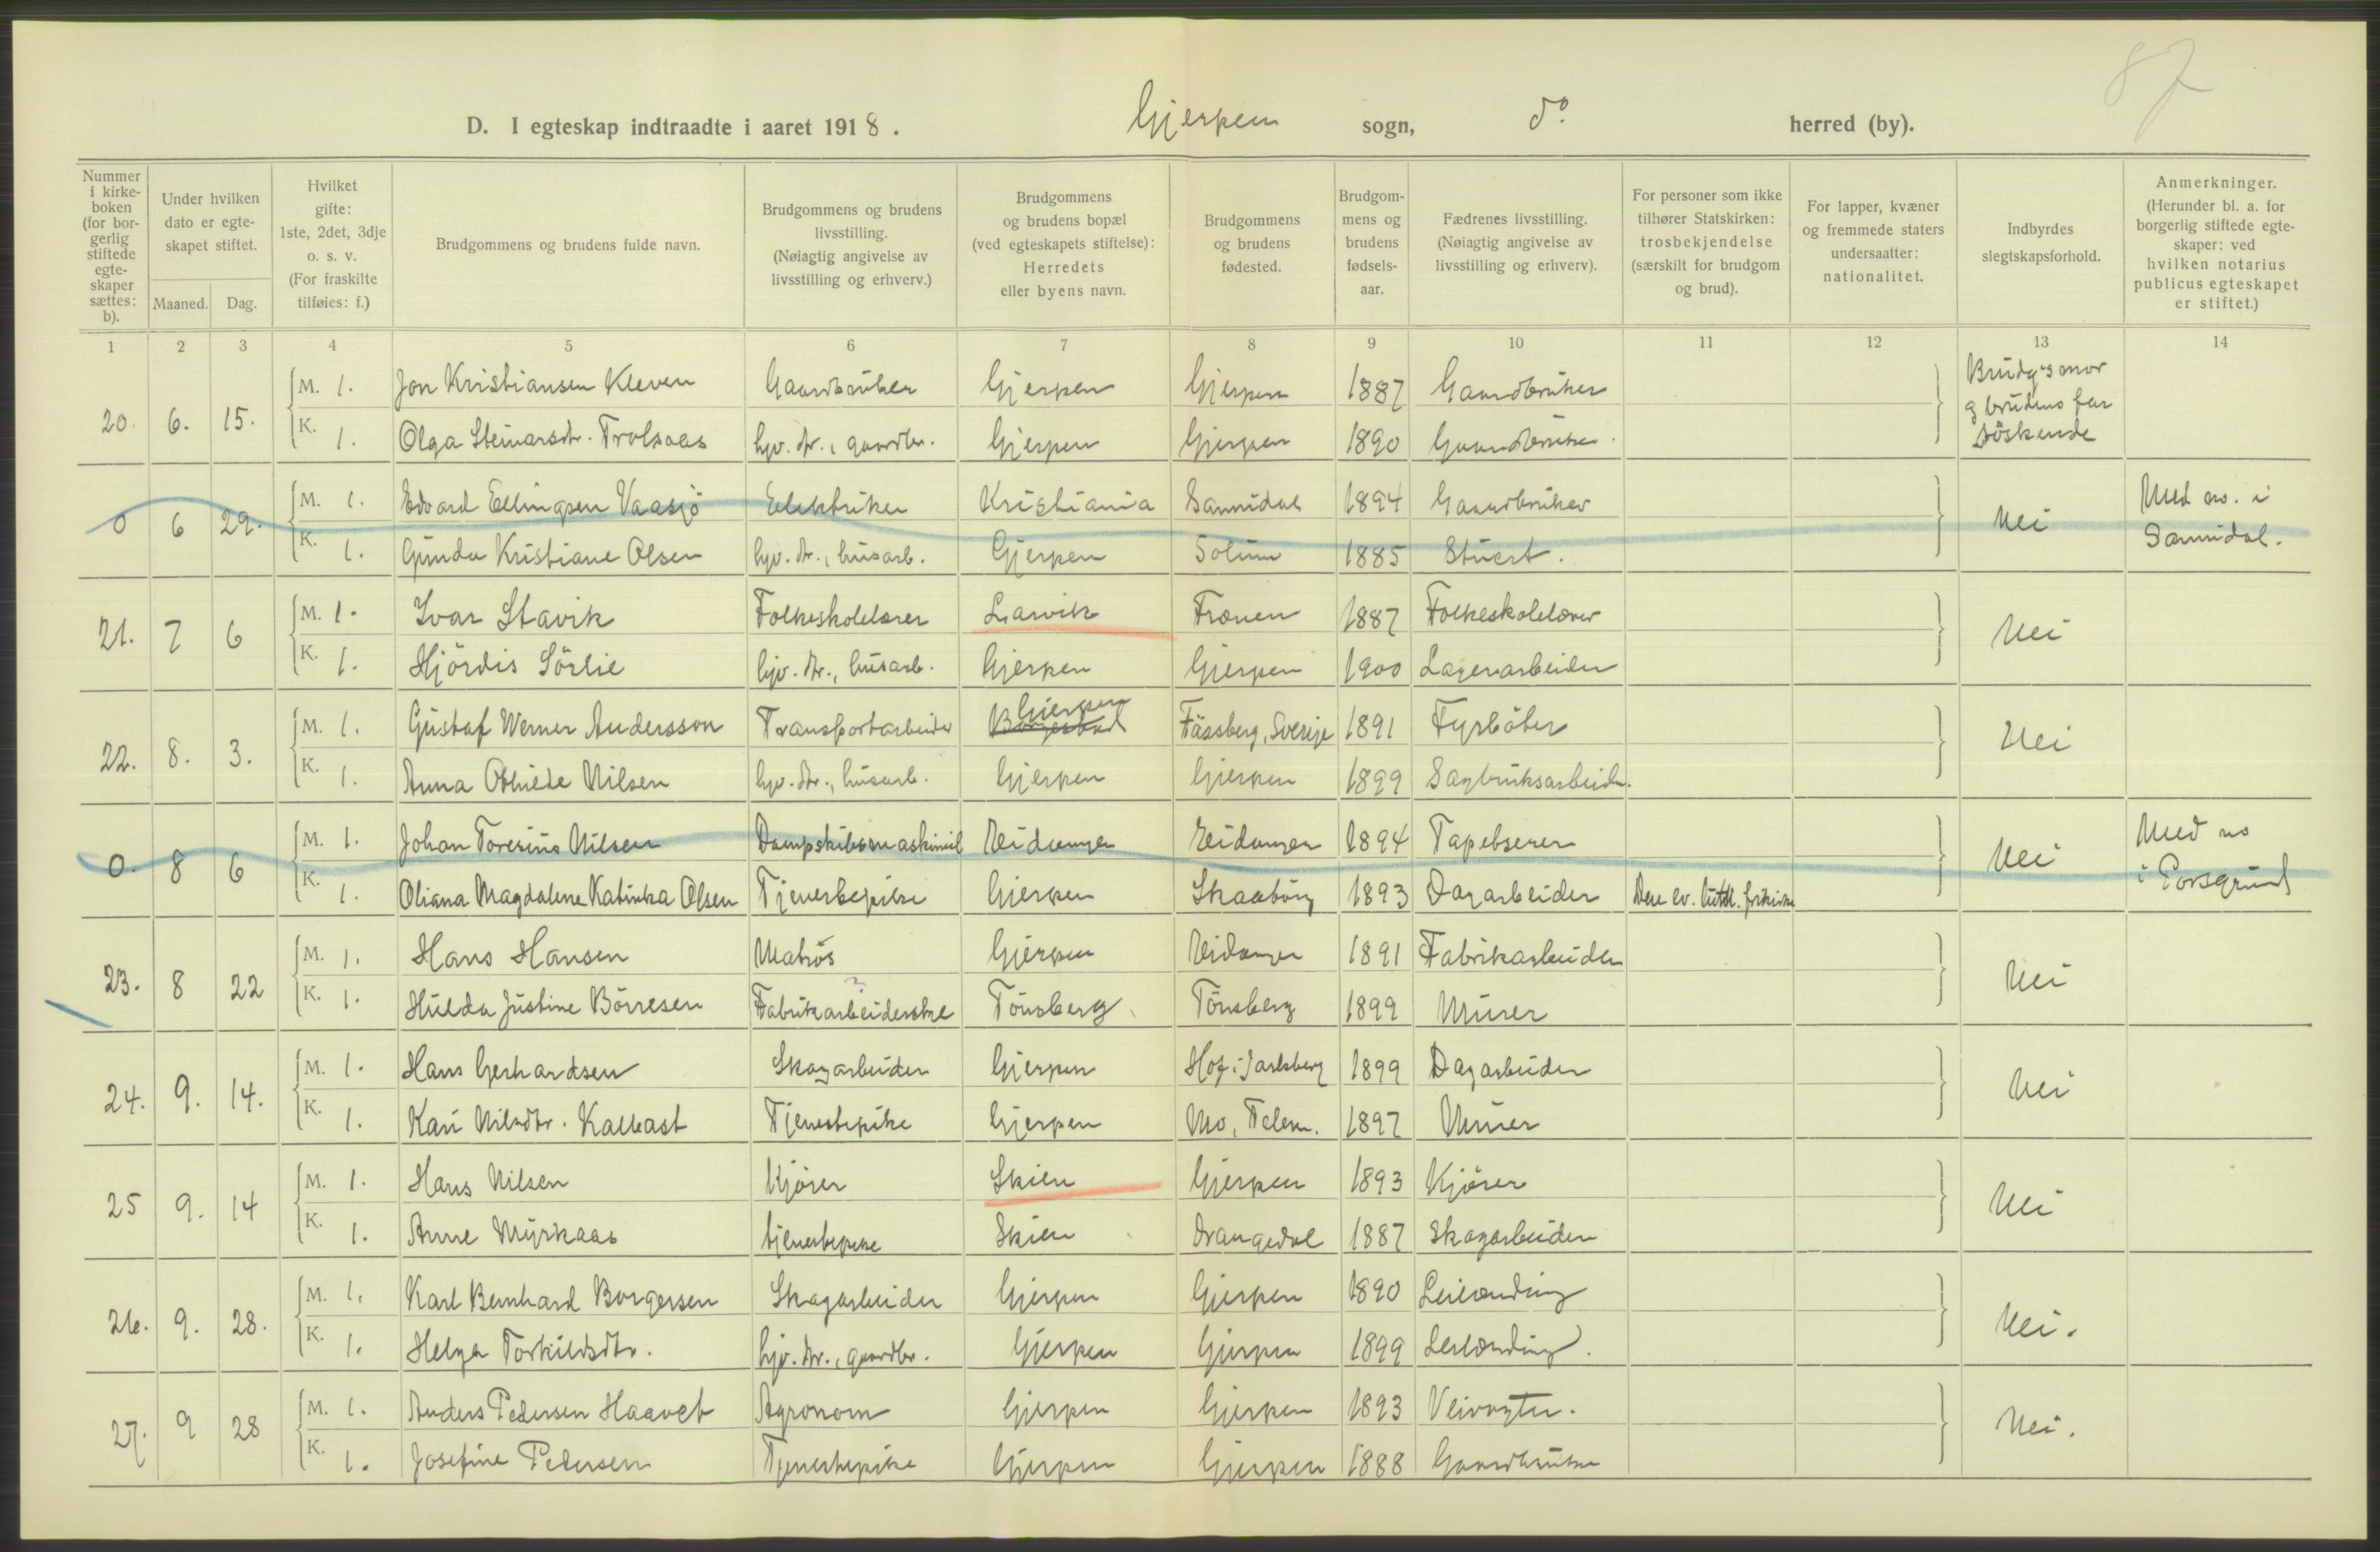 87
D. I egteskap indtraadte i aaret 1918. Gjerpen sogn, do. herred (by).
Nummer i kirkeboken (for borgerlig stiftede egteskaper sættes: b).
Under hvilken dato er egteskapet stiftet.
Maaned. Dag.
Hvilket gifte: 1ste, 2det, 3dje o. s. v. (For fraskilte tilføies: f.)
Brudgommens og brudens fulde navn.
Brudgommens og brudens livsstilling. (Nøiagtig angivelse av livsstilling og erhverv.)
Brudgommens og brudens bopæl (ved egteskapets stiftelse): Herredets eller byens navn.
Brudgommens og brudens fødested.
Brudgommens og brudens fødselsaar.
Fædrenes livsstilling. (Nøiagtig angivelse av livsstilling og erhverv).
For personer som ikke tilhører Statskirken: trosbekjendelse (særskilt for brudgom og brud).
For lapper, kvæner og fremmede staters undersaatter: nationalitet.
Indbyrdes slegtskapsforhold.
Anmerkninger. (Herunder bl. a. for borgerlig stiftede egteskaper: ved hvilken notarius publicus egteskapet er stiftet.)
1 2 3 4 5 6 7 8 9 10 11 12 13 14
20. 6. 15. M. 1. Jon Kristiansen Kleven Gaardbruker Gjerpen Gjerpen 1887 Gaardbruker Brudg's mor og brudens far söskende
K. 1. Olga Steinarsdtr. Trolsaas hjv. dtr., gaardbr. Gjerpen Gjerpen 1890 Gaardbruker.
0 6 29. M. 1. Edvard Ellingsen Vaasjö Elektriker Kristiania Sannidal 1894 Gaardbruker Nei Med no. i Sannidal.
K. 1. Gunda Kristiane Olsen hjv. dtr., husarb. Gjerpen Solum 1885 Stuert.
21. 7 6 M. 1. Ivar Stavik Folkeskolelærer Larvik Frænen 1887 Folkeskolelærer Nei
K. 1. Hjördis Sörlie hjv. dtr., husarb. Gjerpen Gjerpen 1900 Lagerarbeider
22. 8. 3. M. 1. Gustaf Werner Andersson Transportarbeider Borgestad Gjerpen Fässberg, Sverije 1891 Fyrböter Nei
K. 1. Anna Othilde Nilsen hjv. dtr., husarb. Gjerpen Gjerpen 1899 Sagbruksarbeider.
0. 8 6 M. 1. Johan Toresius Nilsen Dampskibsmaskinist Eidanger Eidanger 1894 Tapetserer Nei Med no i Porsgrund
K. 1. Oliana Magdalene Katinka Olsen Tjenestepike Gjerpen Skaabury 1893 Dagarbeider Den ev. luth. frikirke
23. 8 22 M. 1. Hans Hansen Matros Gjerpen Eidanger 1891 Fabrikarbeider Nei
K. 1. Hilda Justine Börresen Fabrikarbeiderske Tönsberg Tönsberg 1899 Murer
24. 9. 14. M. 1. Hans Gerhardsen Skogarbeider Gjerpen Hof i Jarlsberg 1899 Dagarbeider Nei
K. 1. Kari Nilsdtr. Kallast Tjenestepike Gjerpen Mo, Telem. 1897 Murer
25 9. 14 M. 1. Hans Nilsen Kjörer Skien Gjerpen 1893 Kjörer Nei
K. 1. Anne Myrkaas tjenestepike Skien Drangedal 1887 Skogarbeider
26. 9. 28. M. 1. Karl Bernhard Borgersen Skogarbeider Gjerpen Gjerpen 1890 Leilænding Nei.
K. 1. Helga Torkildsdtr. hjv. dtr., gaardbr. Gjerpen Gjerpen 1899 Leilænding.
27. 9 28 M. 1. Anders Pedersen Haavet Agronom Gjerpen Gjerpen 1893 Veivogter. Nei.
K. 1. Josefine Pedersen Tjenestepike Gjerpen Gjerpen 1888 Gaardbruker